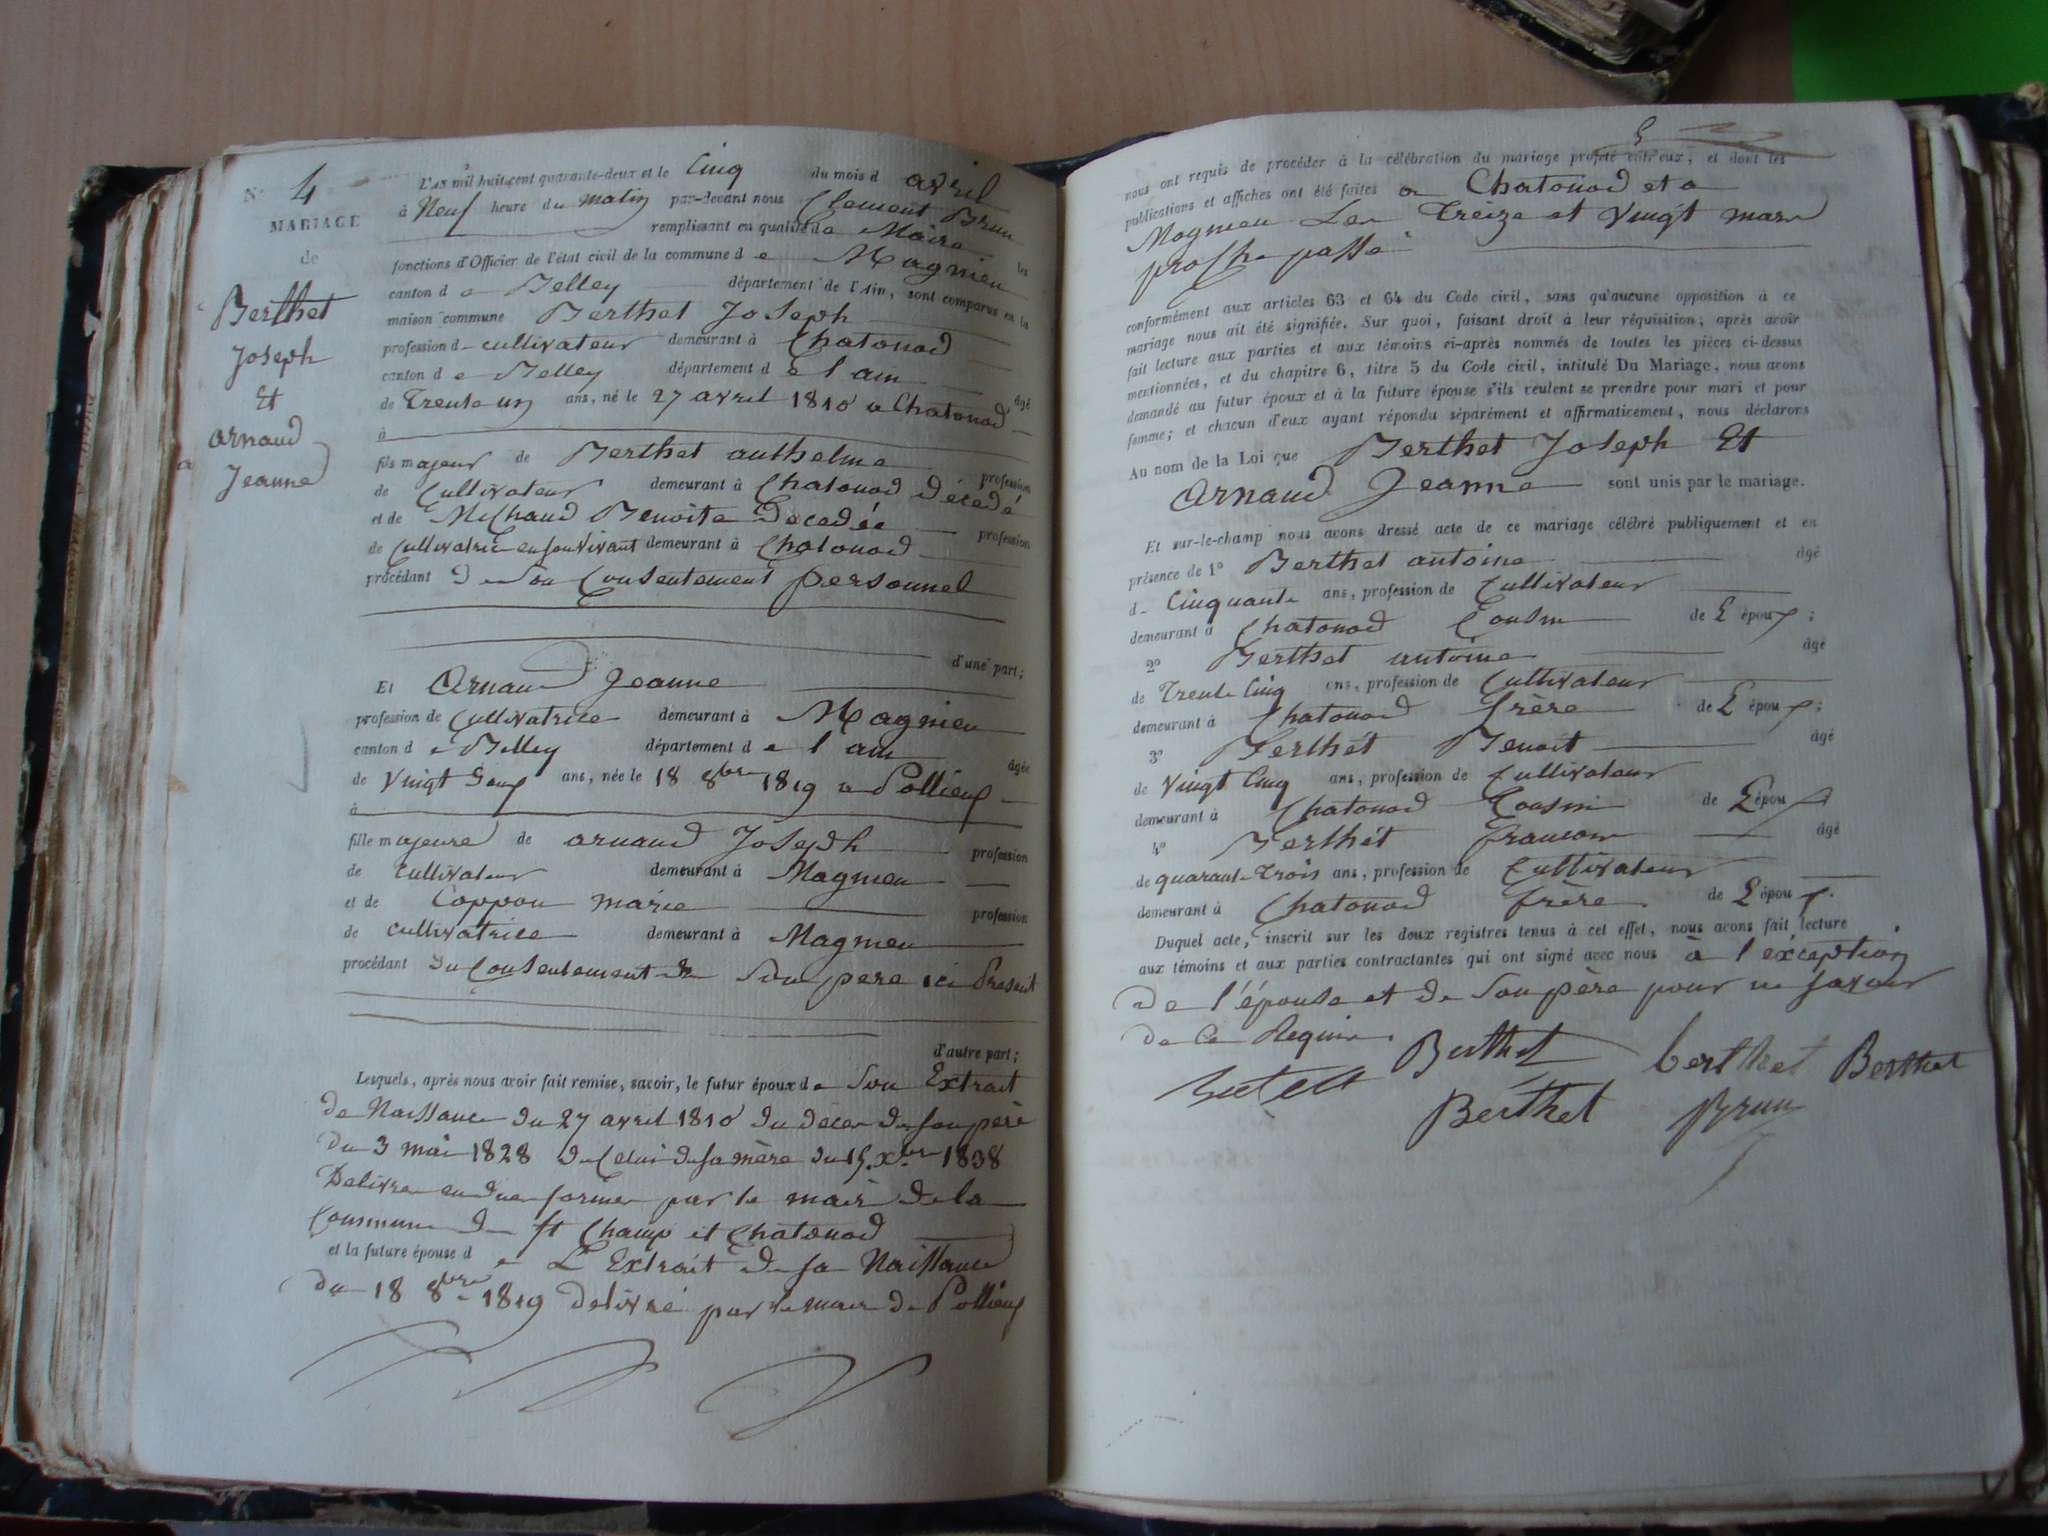 N° 4
MARIAGE
de
Berthet
Joseph
Et
arnaud
Jeanne
L'AN mil huit cent quarante-deux et le Cinq du mois d avril
à Neuf heure du matin par-devant nous Clement Brun
remplissant en qualité de Maire les
fonctions d'Officier de l'état civil de la commune d e Magnieu
canton d e Belley département de l'Ain, sont comparus en la
maison commune Berthet Joseph
profession d- cultivateur demeurant à Chatonod
canton d e Belley département d e l'ain âgé
de Trente un ans, né le 27 avril 1810 a Chatonod
à
fils majeur de Berthet anthelme profession
de Cultivateur demeurant à Chatonod décedé
et de Michaud Benoite decedée profession
de Cultivatrice en son vivant demeurant à Chatonod
procédant de Son Consentement personnel
d'une part;
Et Arnaud Jeanne
profession de Cultivatrice demeurant à Magnieu
canton d e Belley département d e l'ain âgée
de Vingt Deux ans, née le 18 8bre 1819 a Pollieux
à
fille majeure de arnaud Joseph profession
de cultivateur demeurant à Magnieu
et de Coppon marie profession
de cultivatrice demeurant à Magnieu
procédant du Consentement de Son père ici Présent
d'autre part;
Lesquels, après nous avoir fait remise, savoir, le futur époux de Son Extrait
de Naissance du 27 avril 1810 du décès de son père
du 3 mai 1828 de Celui de sa mère du 15 Xbre 1838
Delivres en due forme par le maire de la
Commune de St Champ et Chatonod
et la future épouse d e L'Extrait de sa Naissance
du 18 8bre 1819 delivré par le maire de Pollieux
5
nous ont requis de procéder à la célébration du mariage projeté entr'eux, et dont les
publications et affiches ont été faites a Chatonod et a
Magnieu Les Treize et Vingt mars
proche passé
conformément aux articles 63 et 64 du Code civil, sans qu'aucune opposition à ce
mariage nous ait été signifiée. Sur quoi, faisant droit à leur réquisition, après avoir
fait lecture aux parties et aux témoins ci-après nommés de toutes les pièces ci-dessus
mentionnées, et du chapitre 6, titre 5 du Code civil, intitulé Du Mariage, nous avons
demandé au futur époux et à la future épouse s'ils veulent se prendre pour mari et pour
femme; et chacun d'eux ayant répondu séparément et affirmativement, nous déclarons
Au nom de la Loi que Berthet Joseph Et
Arnaud Jeanne sont unis par le mariage.
Et sur-le-champ nous avons dressé acte de ce mariage célébré publiquement et en
présence de 1° Berthet antoine âgé
d- Cinquante ans, profession de Cultivateur
demeurant à Chatonod Cousin de L'époux;
2° Berthet antoine âgé
de Trente Cinq ans, profession de Cultivateur
demeurant à Chatonod frère de L'époux;
3° Berthet Benoit âgé
de Vingt Cinq ans, profession de Cultivateur
demeurant à Chatonod Cousin de L'époux
4° Berthet francois âgé
de quarante Trois ans, profession de Cultivateur
demeurant à Chatonod frère de L'époux.
Duquel acte, inscrit sur les deux registres tenus à cet effet, nous avons fait lecture
aux témoins et aux parties contractantes qui ont signé avec nous à l'exception
de l'épouse et de Son père pour ne savoir
de Ce Requis.
Berthet berthet Berthet
Berthet Brun